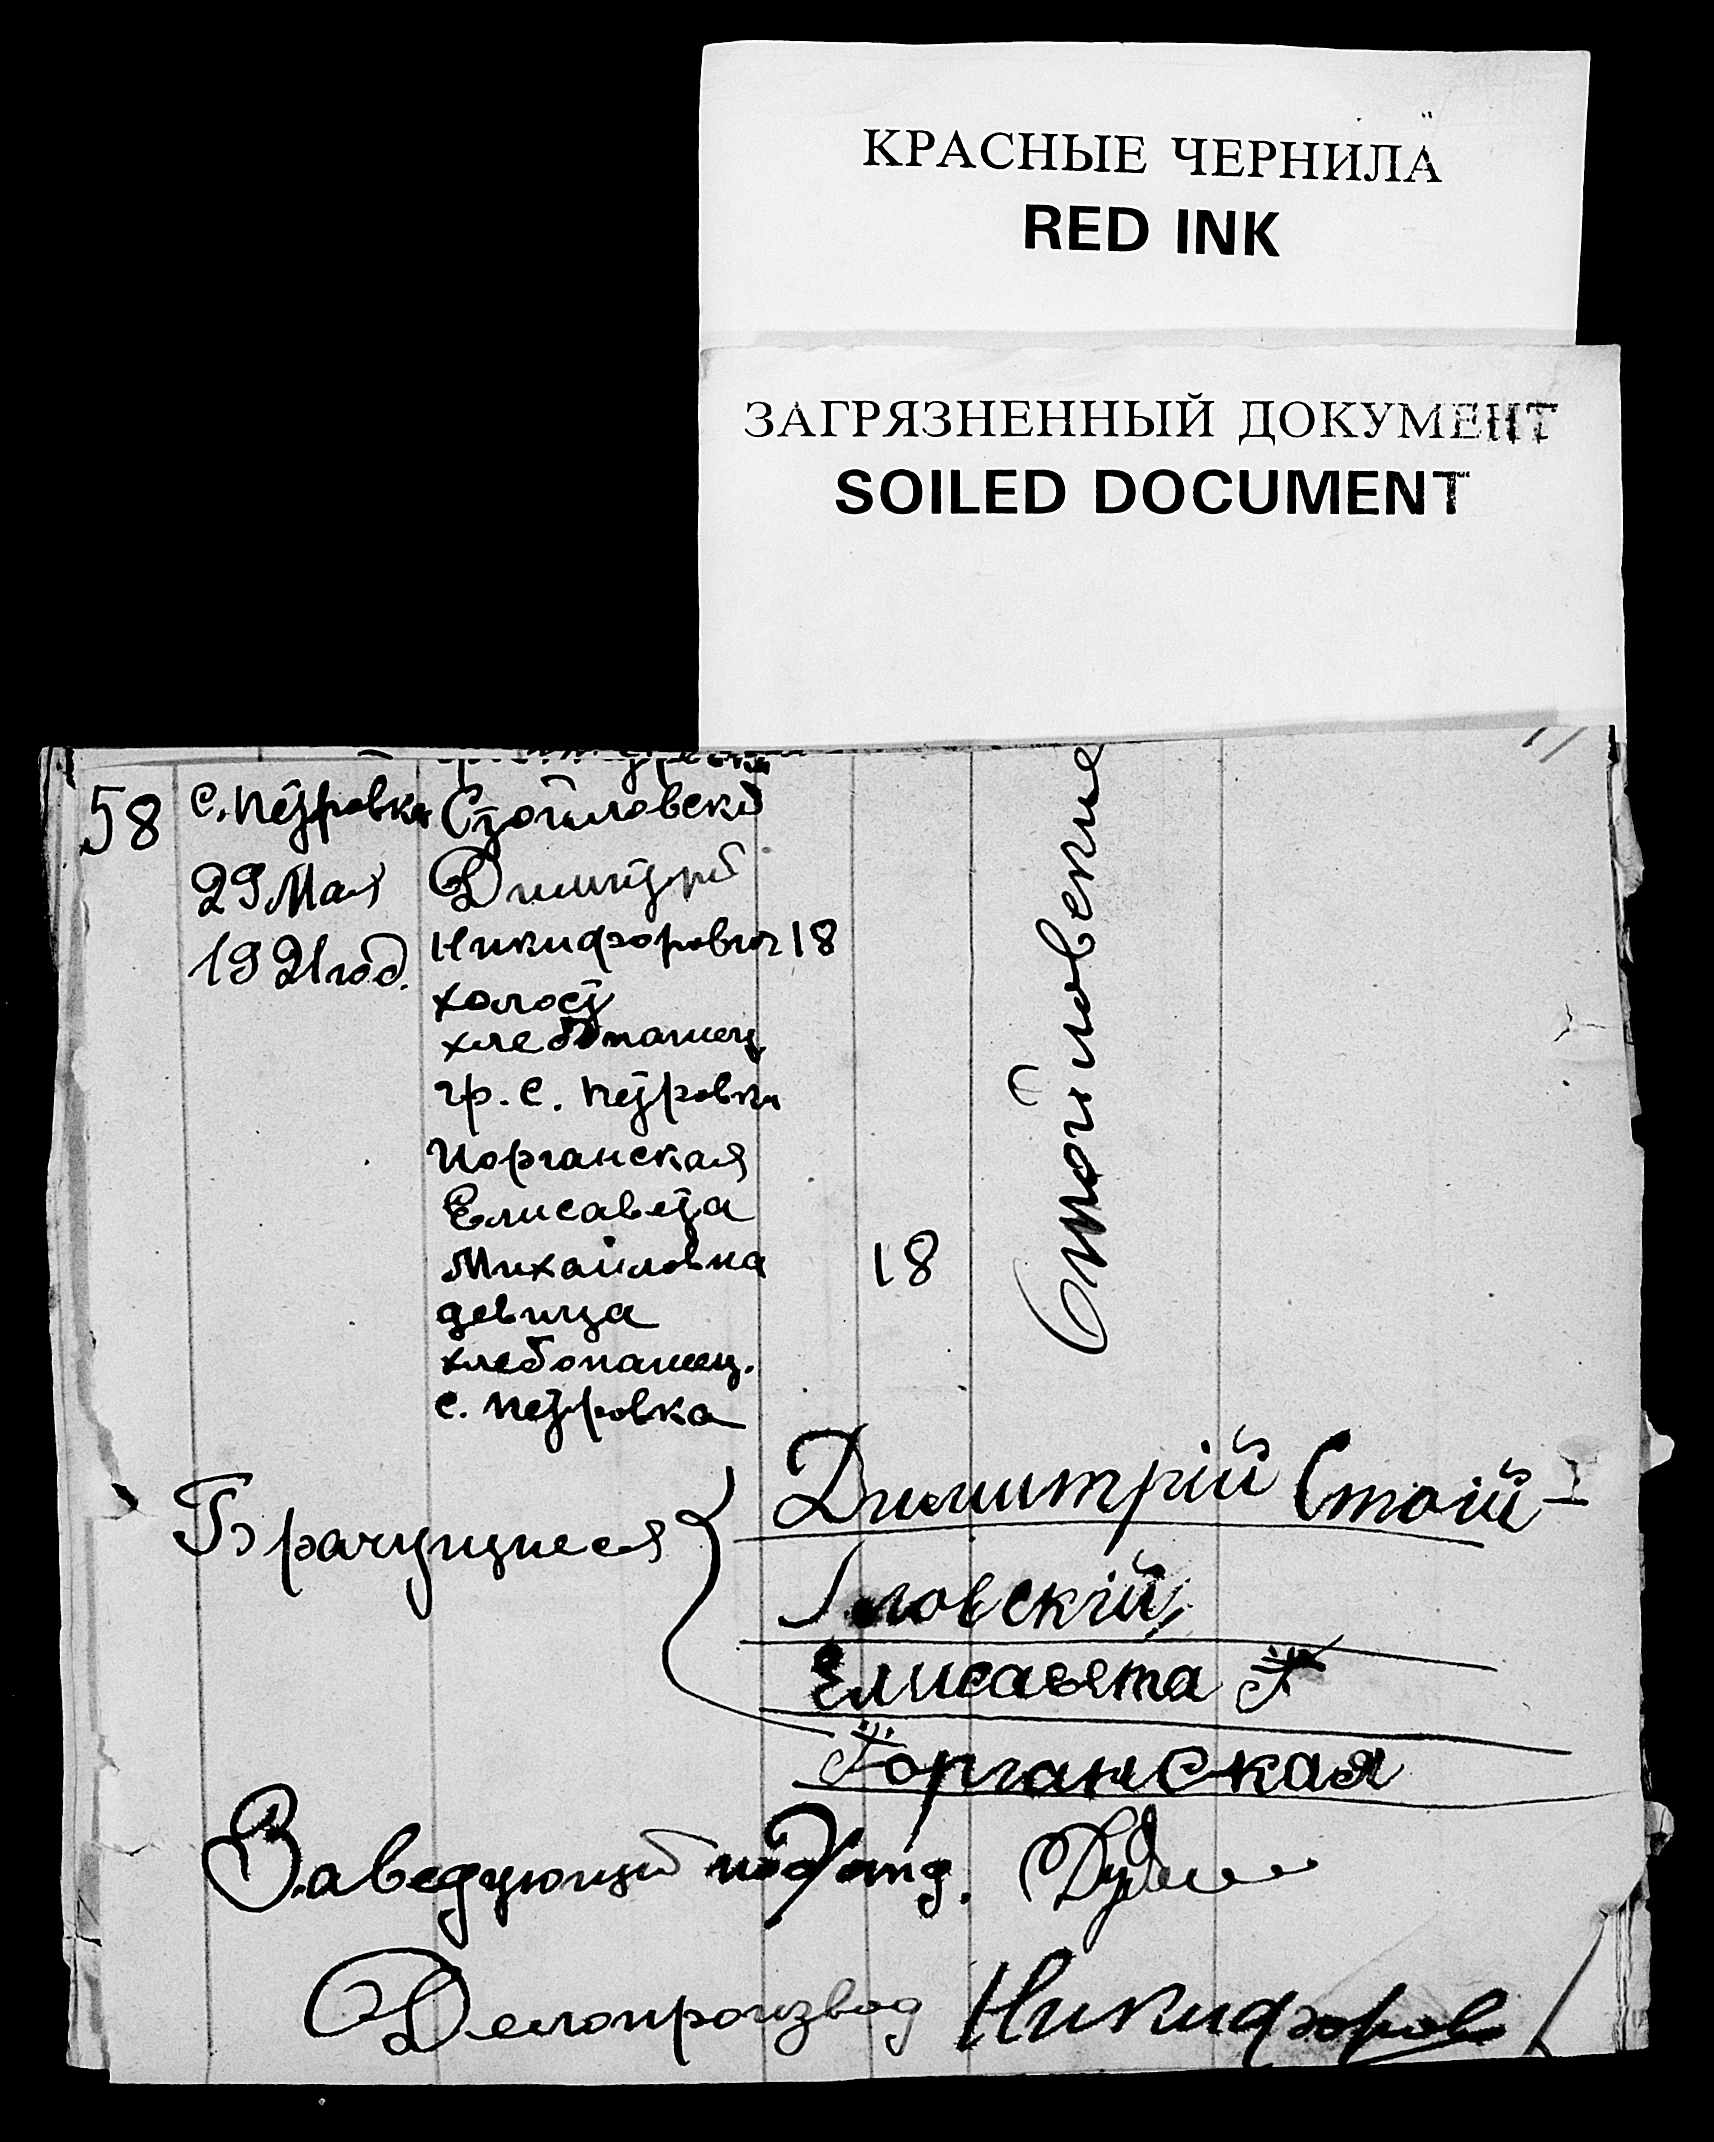 КРАСНЫЕ ЧЕРНИЛА
RED INK
ЗАГРЯЗНЕННЫЙ ДОКУМЕНТ
SOILED DOCUMENT
58
с. Петровка
29 Мая
1921 год.
Стойловский
Димитрий
Никифорович 18
холост
хлебопашец
гр. с. Петровки
Иорганская
Елисавета
Михайловна
девица
хлебопашец.
с. Петровка
18
Стойловские
Брачущиеся
Димитрій Стой-
ловскій
Елисавета
Горганская
Заведующий под/отд.
Делопроизвод Никифоров